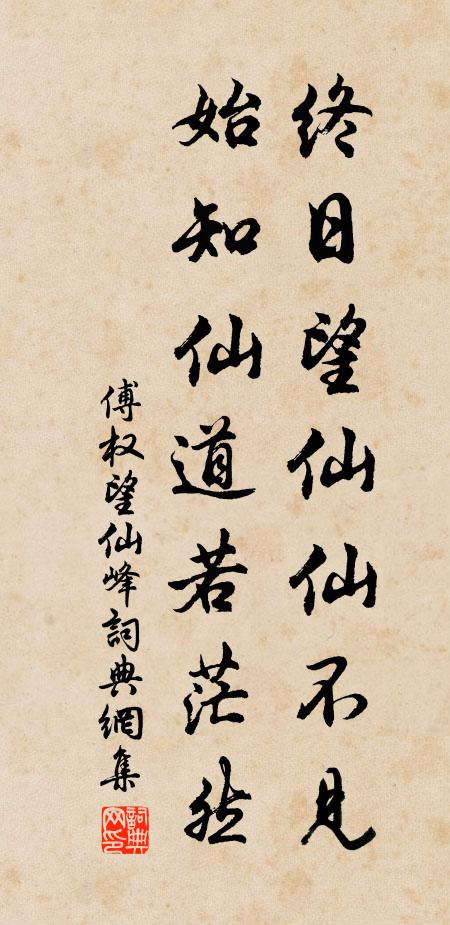 終日望仙仙不見
始知仙道若茫然
傅权望仙峰詞典網集
詞典网印